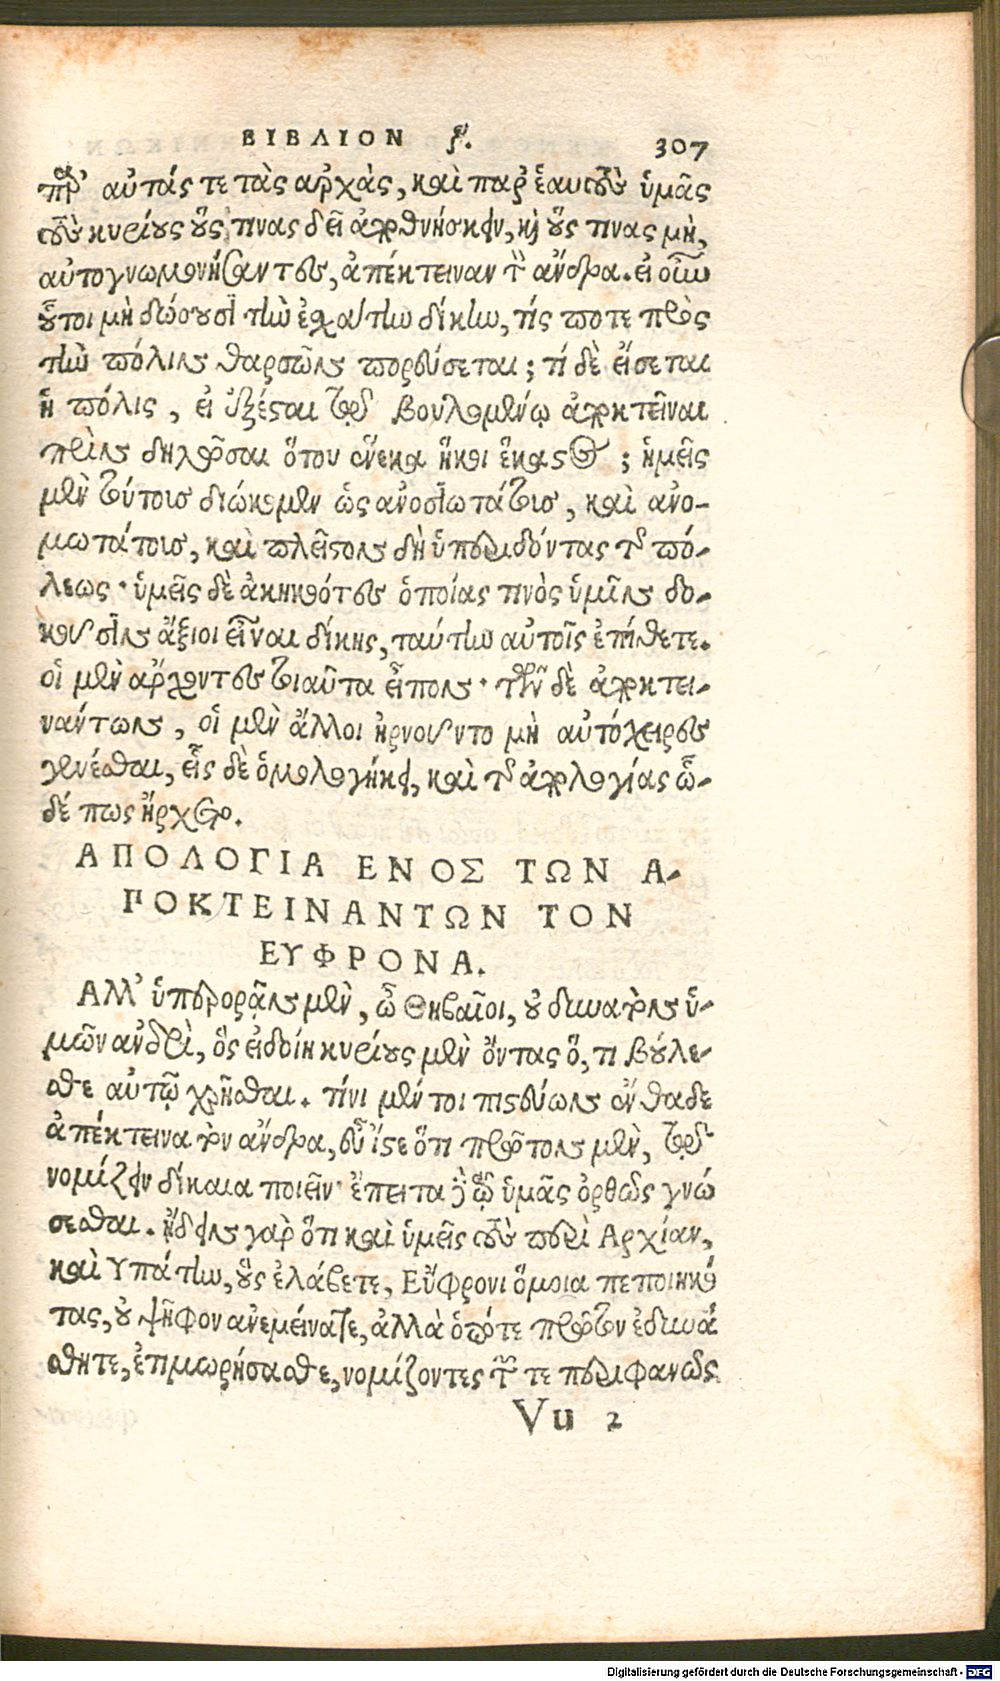 ΒΙΒΛΙΟΝ ζ. 307
παρ' αὐτάς τε τὰς ἀρχὰς, καὶ παρ' ἑαυτοὺς ὑμᾶς
τοὺς κυρίους οὕς τινας δεῖ ἀποθνήσκειν, καὶ οὕς τινας μὴ,
αὐτογνωμονήσαντες, ἀπέκτειναν τὸν ἄνδρα. εἰ οὖν
οὗτοι μὴ δώσουσι τὴν ἐσχάτην δίκην, τίς ποτε πρὸς
τὴν πόλιν θαρσῶν πορεύσεται; τί δὲ εἴσεται
ἡ πόλις, εἰ ἐξέσται τῷ βουλομένῳ ἀποκτεῖναι
πρὶν δηλῶσαι ὅτου ἕνεκα ἥκει ἕκαστος; ἡμεῖς
μὲν τούτοις διώκομεν ὡς ἀνοσιωτάτοις, καὶ ἀνο-
μωτάτοις, καὶ πλεῖστον δὴ ὑπεριδόντας τῆς πό-
λεως· ὑμεῖς δὲ ἀκηκοότες ὁποίας τινὸς ὑμῖν δο-
κοῦσιν ἄξιοι εἶναι δίκης, ταύτην αὐτοῖς ἐπίθετε.
οἱ μὲν ἄρχοντες τοιαῦτα εἶπον· τῶν δὲ ἀποκτει-
νάντων, οἱ μὲν ἄλλοι ἠρνοῦντο μὴ αὐτόχειρες
γενέσθαι, εἷς δὲ ὁμολογήκει, καὶ τῆς ἀπολογίας ὧ-
δέ πως ἤρχετο.
ΑΠΟΛΟΓΙΑ ΕΝΟΣ ΤΩΝ Α-
ΠΟΚΤΕΙΝΑΝΤΩΝ ΤΟΝ
ΕΥΦΡΟΝΑ.
Ἀλλ' ὑπερορᾷν μὲν, ὦ Θηβαῖοι, οὐ δυνατὸν ὑ-
μῶν ἀνδρὶ, ὃς εἰδείη κυρίους μὲν ὄντας ὅ, τι βούλε-
σθε αὐτῷ χρῆσθαι. τίνι μέν τοι πιστεύων ἐνθάδε
ἀπέκτεινα τὸν ἄνδρα, εὖ ἴστε ὅτι πρῶτον μὲν, τῷ
νομίζειν δίκαια ποιεῖν· ἔπειτα δὲ τῷ ὑμᾶς ὀρθῶς γνώ
σεσθαι. ᾔδειν γὰρ ὅτι καὶ ὑμεῖς τοὺς περὶ Ἀρχίαν,
καὶ Ὑπάτην, οὓς ἐλάβετε, Εὔφρονι ὅμοια πεποιηκό
τας, οὐ ψῆφον ἀνεμείνατε, ἀλλὰ ὁπότε πρῶτον ἐδυνά
σθητε, ἐτιμωρήσασθε, νομίζοντες τῶν τε περιφανῶς
Vu 2
Digitalisierung gefördert durch die Deutsche Forschungsgemeinschaft - DFG